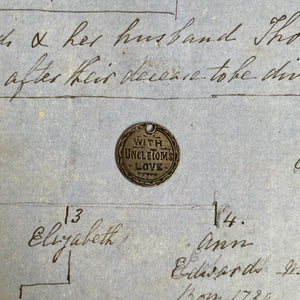 & her husband Tho
after their decease to be di
WITH
UNCLE TOM'S
LOVE
3
Elizabeth
4.
Ann
Edwards
Born